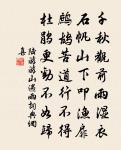 千秋觀前雨濕衣
石帆山下叩漁扉
鷓鴣苦道行不得
杜鵑更勸不如歸
陸游游山遇雨詞典網
喜